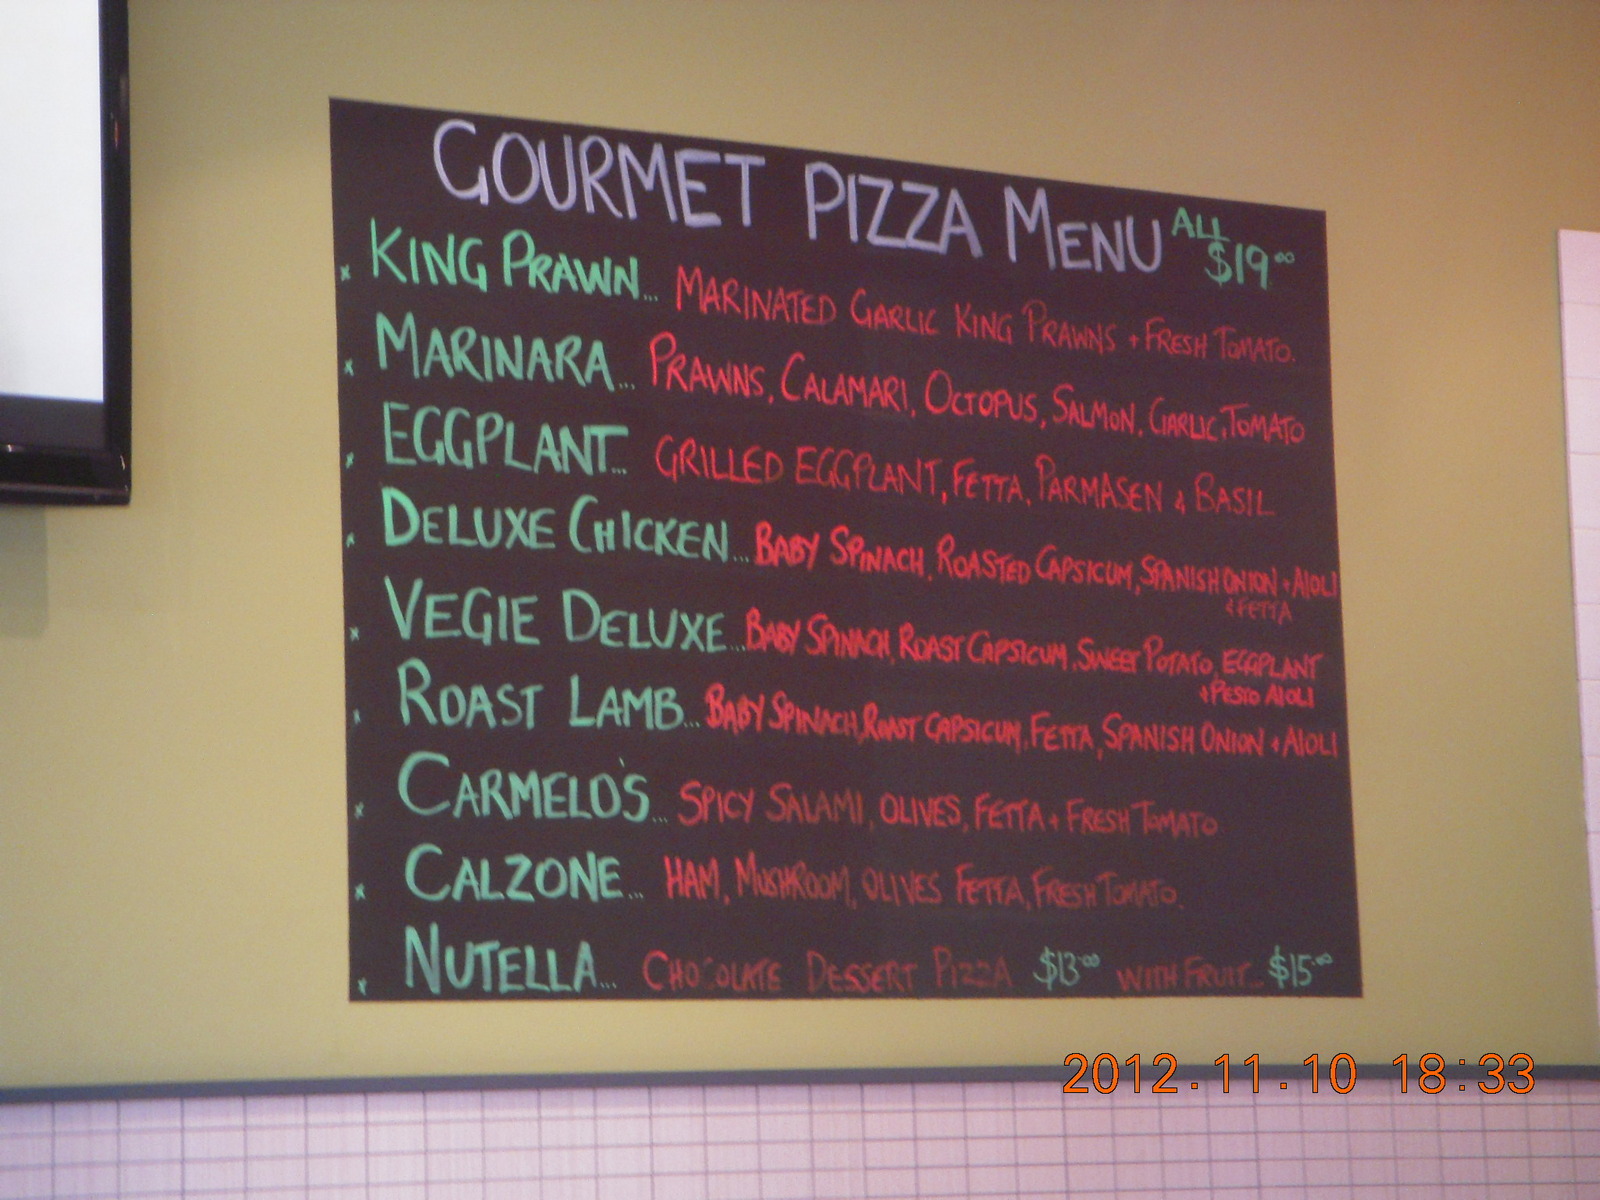 GOURMET PIZZA MENU ALL $19.00
x KING PRAWN... MARINATED GARLIC KING PRAWNS + FRESH TOMATO.
x MARINARA... PRAWNS, CALAMARI, OCTOPUS, SALMON, GARLIC, TOMATO
x EGGPLANT... GRILLED EGGPLANT, FETTA, PARMASEN & BASIL
x DELUXE CHICKEN... BABY SPINACH, ROASTED CAPSICUM, SPANISH ONION + AIOLI
& FETTA
x VEGIE DELUXE... BABY SPINACH, ROAST CAPSICUM, SWEET POTATO, EGGPLANT
+ PESTO AIOLI
x ROAST LAMB... BABY SPINACH, ROAST CAPSICUM, FETTA, SPANISH ONION + AIOLI
x CARMELO'S... SPICY SALAMI, OLIVES, FETTA + FRESH TOMATO
x CALZONE... HAM, MUSHROOM, OLIVES FETTA, FRESH TOMATO.
x NUTELLA... CHOCOLATE DESSERT PIZZA $13.00 WITH FRUIT... $15.00
2012.11.10 18:33